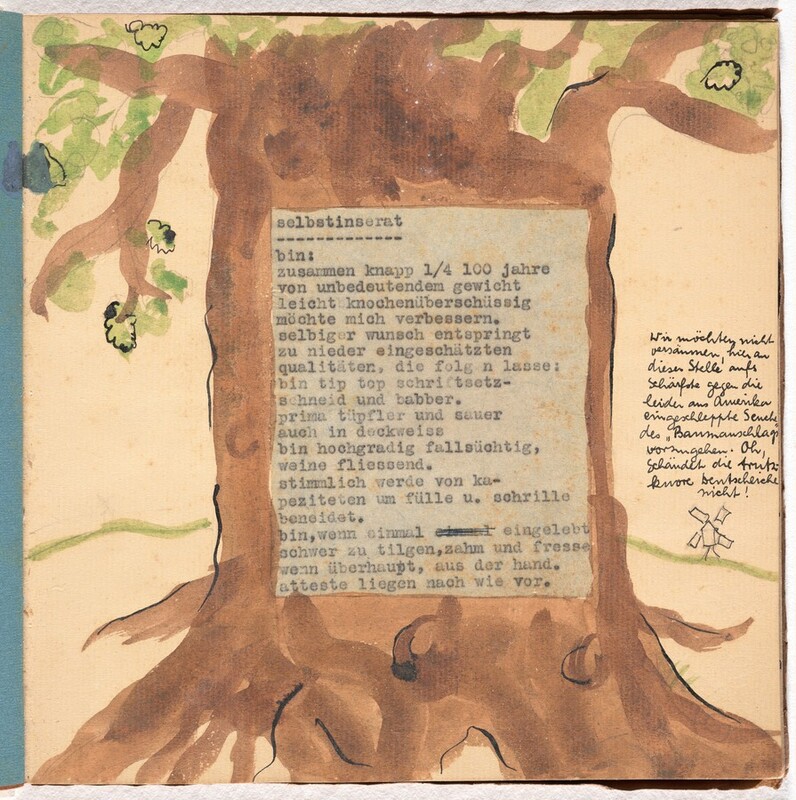 selbstinserat
-------------
bin:
zusammen knapp 1/4 100 jahre
von unbedeutendem gewicht
leicht knochenüberschüssig
möchte mich verbessern.
selbiger wunsch entspringt
zu nieder eingeschätzten
qualitäten, die folg n lasse:
bin tip top schriftsetz-
schneid und babber.
prima tüpfler und sauer
auch in deckweiss
bin hochgradig fallsüchtig,
weine fliessend.
stimmlich werde von ka-
peziteten um fülle u. schrille
beneidet.
bin,wenn einmal einmal eingelebt
schwer zu tilgen,zahm und fresse
wenn überhaupt, aus der hand.
atteste liegen nach wie vor.
Wir möchten nicht
versäumen, hier an
dieser Stelle aufs
schärfste gegen die
leider aus Amerika
eingeschleppte Seuche
des „Baumanschlags
vorzugehen. Oh,
schändet die
knore deutscheiche
nicht!